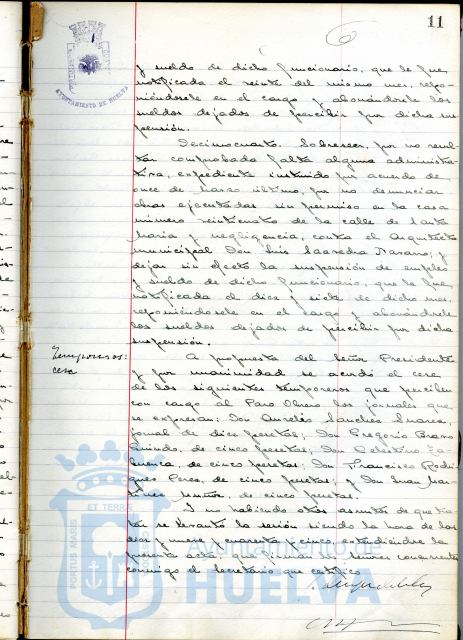 11
6
AYUNTAMIENTO DE HUELVA
y sueldo de dicho funcionario, que le fue
notificada el veinte del mismo mes, repo-
niéndosele en el cargo y abonándosele los
sueldos dejados de percibir por dicha sus-
pensión.
Decimocuarto. Sobreseer, por no resul-
tar comprobada falta alguna administra-
tiva, expediente instruido por acuerdo de
once de Marzo último, por no denunciar
obras ejecutadas sin permiso en la casa
número veinticuatro de la calle de Santa
María y negligencia, contra el Arquitecto
municipal Don Luis Saavedra Navarro; y
dejar sin efecto la suspensión de empleo
y sueldo de dicho funcionario, que le fue
notificada el diez y siete de dicho mes,
reponiéndosele en el cargo y abonándosele
los sueldos dejados de percibir por dicha
suspensión.
Temporeros:
cese
A propuesta del Señor Presidente
y por unanimidad se acordó el cese
de los siguientes temporeros que perciben
con cargo al Paro Obrero los jornales que
se expresan: Don Aurelio Sanches Suarez,
jornal de diez pesetas; Don Gregorio Bravo
de cinco pesetas; Don Celestino
de cinco pesetas; Don Francisco Rodri-
guez Perez, de cinco pesetas; y Don Juan Mar-
tinez Muñoz, de cinco pesetas.
Y no habiendo otros asuntos de que tra-
tar se levantó la sesión siendo la hora de las
diez y nueve y cuarenta y cinco, extendiéndose la
presente acta que firman los señores concurrentes
conmigo el Secretario que certifico.
PORTUS MARIS ET TERRAE
Ayuntamiento de
HUELVA